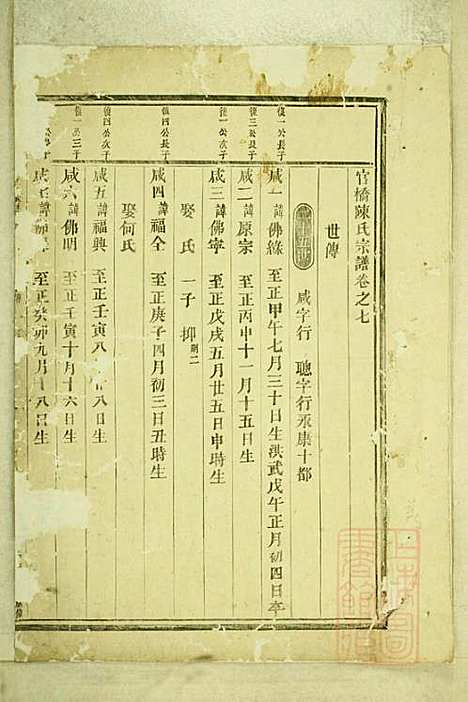 官橋陳氏宗譜卷之七
世傳
咸字行 聰字行永康十都
後一公長子
咸一諱佛緣 至正甲午七月三十日生洪武戊午正月初四日卒
後三公長子
咸二諱原宗 至正丙申十一月十五日生
後一公次子
咸三諱佛寧 至正戊戌五月廿五日申時生
娶 氏 一子 抑
後四公長子
咸四諱福全 至正庚子四月初三日丑時生
娶何氏
後四公次子
咸五諱福興 至正壬寅八 廿八日生
後一公三子
咸六諱佛明 至正壬寅十月十六日生
咸七諱 至正癸卯九月十八日生